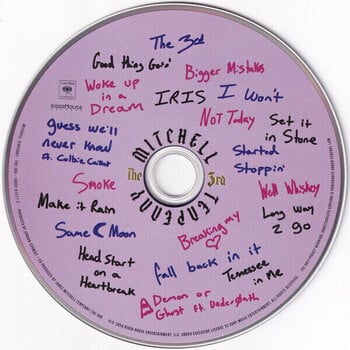 The 3rd
Good thing Goin'
Bigger Mistakes
Woke up
in a
Dream
IRIS
I Won't
Not Today
Set it
in Stone
guess we'll
never know
ft. Colbie Caillat
COLUMBIA
RISER HOUSE
MITCHELL
TENPENNY
The 3rd
Started
Stoppin'
Smoke
Well Whiskey
Make it Rain
Long Way
2 go
Same Moon
Breaking my
Head Start
on a
Heartbreak
fall back in it
Tennessee
in Me
Demon or
Ghost ft. Underoath